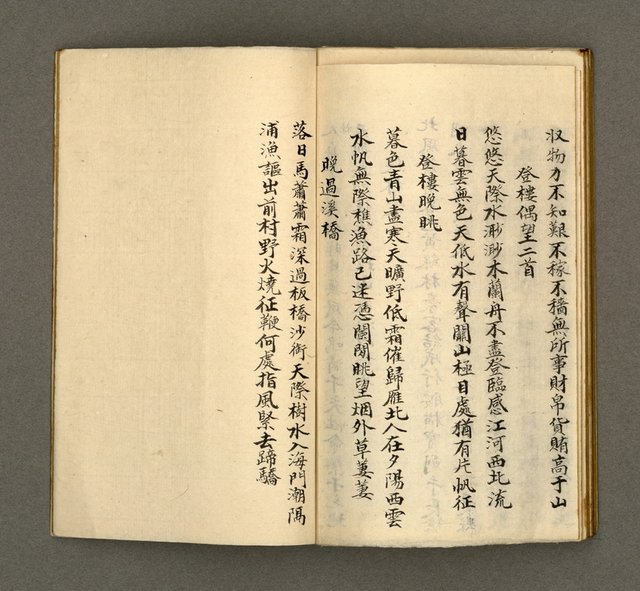 収物力不知艱不稼不穡無所事財帛貨賄高于山
登樓偶望二首
悠悠天際水渺渺木蘭舟不盡登臨感江河西北流
日暮雲無色天低水有聲關山極目處猶有片帆征
登樓晚眺
暮色青山盡寒天曠野低霜催歸雁北人在夕陽西雲
水帆無際樵漁路已迷憑闌閒眺望烟外草萋萋
晚過溪橋
落日馬蕭蕭霜深過板橋沙銜天際樹水入海門潮隔
浦漁謳出前村野火燒征鞭何處指風緊去蹄驕